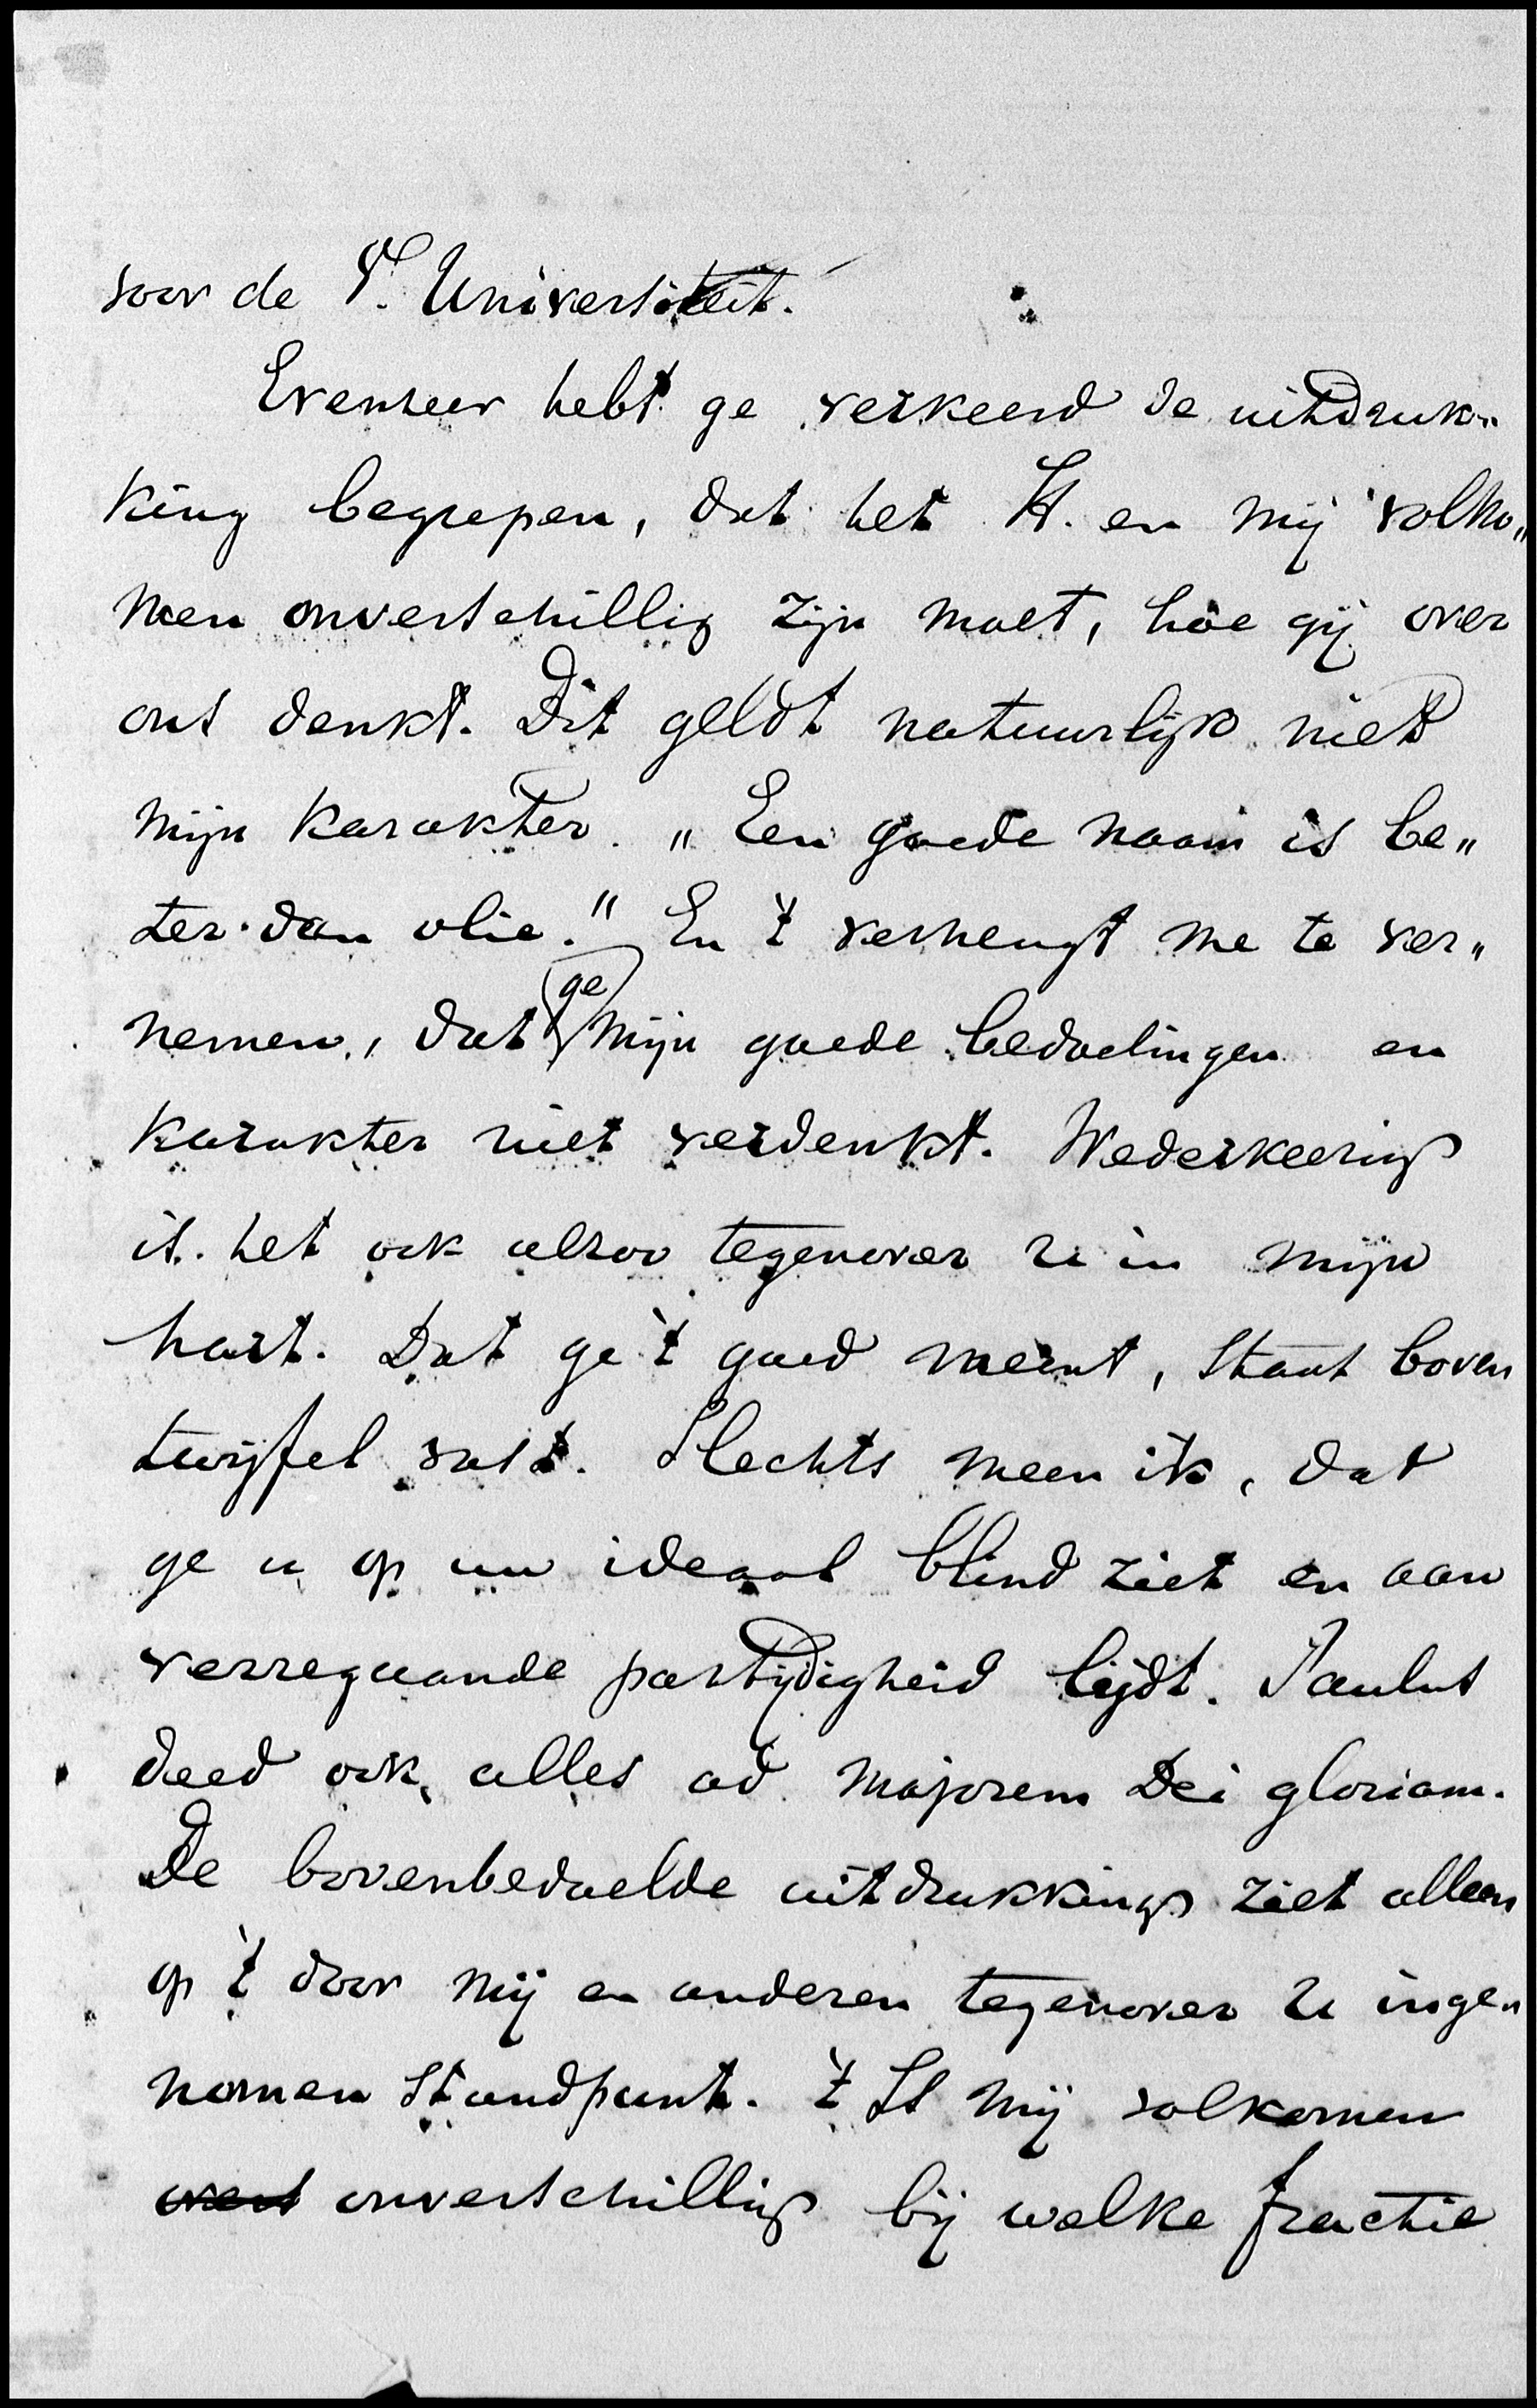 voor de V. Universiteit.
Evenzeer hebt ge verkeerd de uitdruk„
king begrepen, dat het H. en mij volko„
men onverschillig zijn moet, hoe gij over
ons denkt. Dit geldt natuurlijk niet
mijn karakter. „Een goede naam is be„
ter dan olie." En 't verheugt me te ver„
nemen, dat ge mijn goede bedoelingen en
karakter niet verdenkt. Wederkeerig
is het ook alzoo tegenover U in mijn
hart. Dat ge 't goed meent, staat boven
twijfel vast. Slechts meen ik, dat
ge u op uw ideaal blind ziet en aan
verregaande partijdigheid lijdt. Paulus
deed ook alles ad majorem Dei gloriam.
De bovenbedoelde uitdrukking ziet alleen
op 't door mij en anderen tegenover U inge„
nomen standpunt. 't Is mij volkomen
onverschillig bij welke fractie